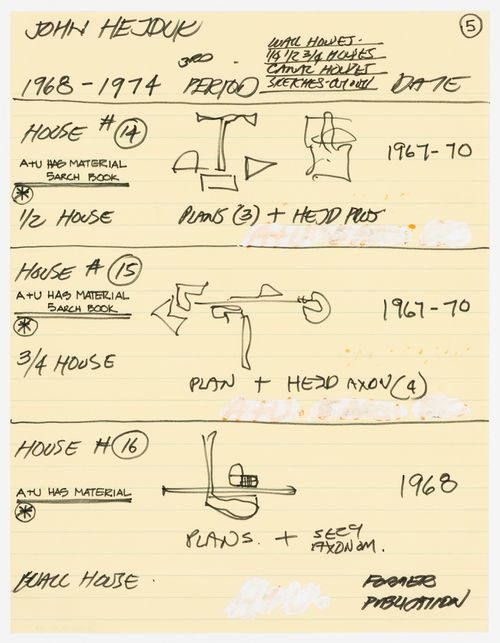 JOHN HEJDUK
5
WALL HOUSES.
1/4 1/2 3/4 HOUSES
3RD
1968-1974 PERIOD DATE
HOUSE # 14
1967-70
A+U HAS MATERIAL
5 ARCH BOOK
*
1/2 HOUSE PLANS (3) + HEJD
HOUSE # 15
1967-70
A+U HAS MATERIAL
5 ARCH BOOK
*
3/4 HOUSE
PLAN + HEJD AXON (4)
HOUSE # 16
1968
A+U HAS MATERIAL
*
PLANS. +
AXONOM.
WALL HOUSE.
FORMER
PUBLICATION